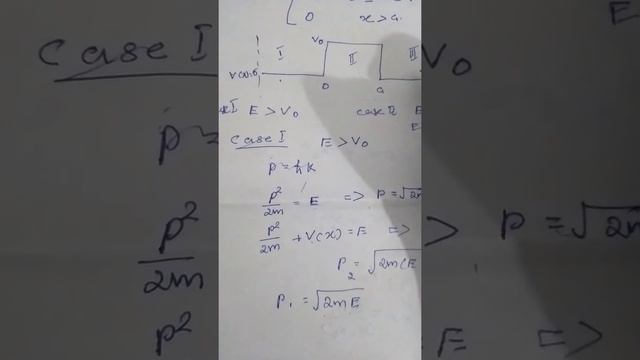 0 x>a.
V₀
I II III
V(x)=0
0 a
E > V₀ case II E
Case I E > V₀
p = ħk
p²/2m = E => p = √2m
p²/2m + V(x) = E =>
P₂ = √2m(E
P₁ = √2mE